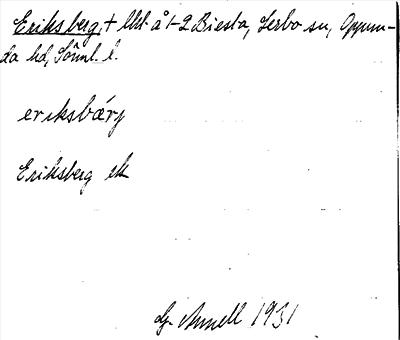 Eriksberg, + lht å 1-2 Biesta, Lerbo sn, Oppun-
da hd, Sönnl. l.
eriksbærj
Eriksberg ek
G. Annell 1931